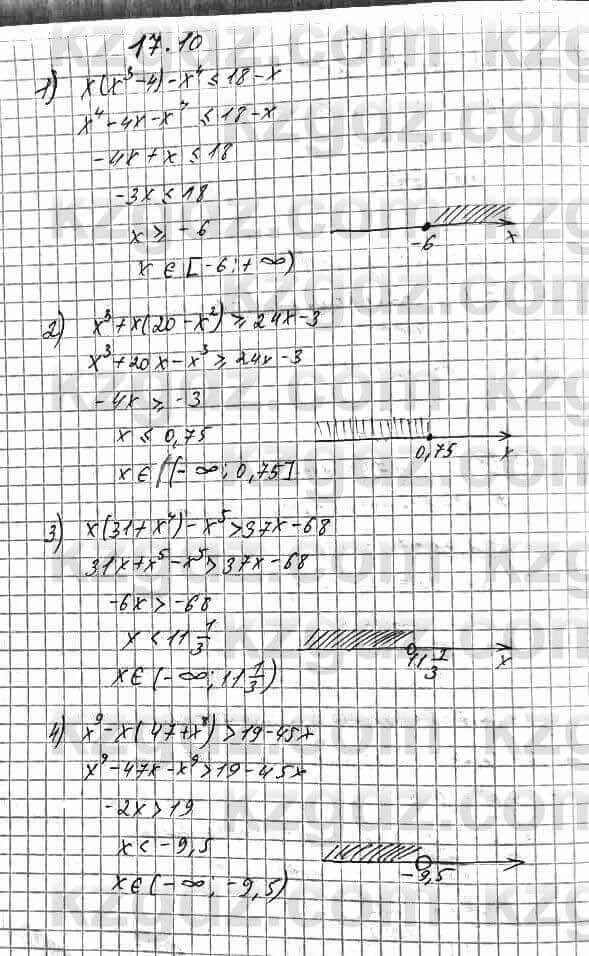 17.10
1) x(x³-4)-x⁴ ≤ 18-x
x⁴-4x-x⁴ ≤ 18-x
-4x+x ≤ 18
-3x ≤ 18
x ≥ -6
-6 x
x ∈ [-6; +∞)
2) x³+x(20-x²) ≥ 24x-3
x³+20x-x³ ≥ 24x-3
-4x ≥ -3
x ≤ 0,75
0,75 x
x ∈ (-∞; 0,75]
3) x(31+x⁴)-x⁵ > 37x-68
31x+x⁵-x⁵ > 37x-68
-6x > -68
x < 11 1/3
11 1/3 x
x ∈ (-∞; 11 1/3)
4) x⁹-x(47+x⁸) > 19-45x
x⁹-47x-x⁹ > 19-45x
-2x > 19
x < -9,5
-9,5
x ∈ (-∞; -9,5)
kzgdz.com